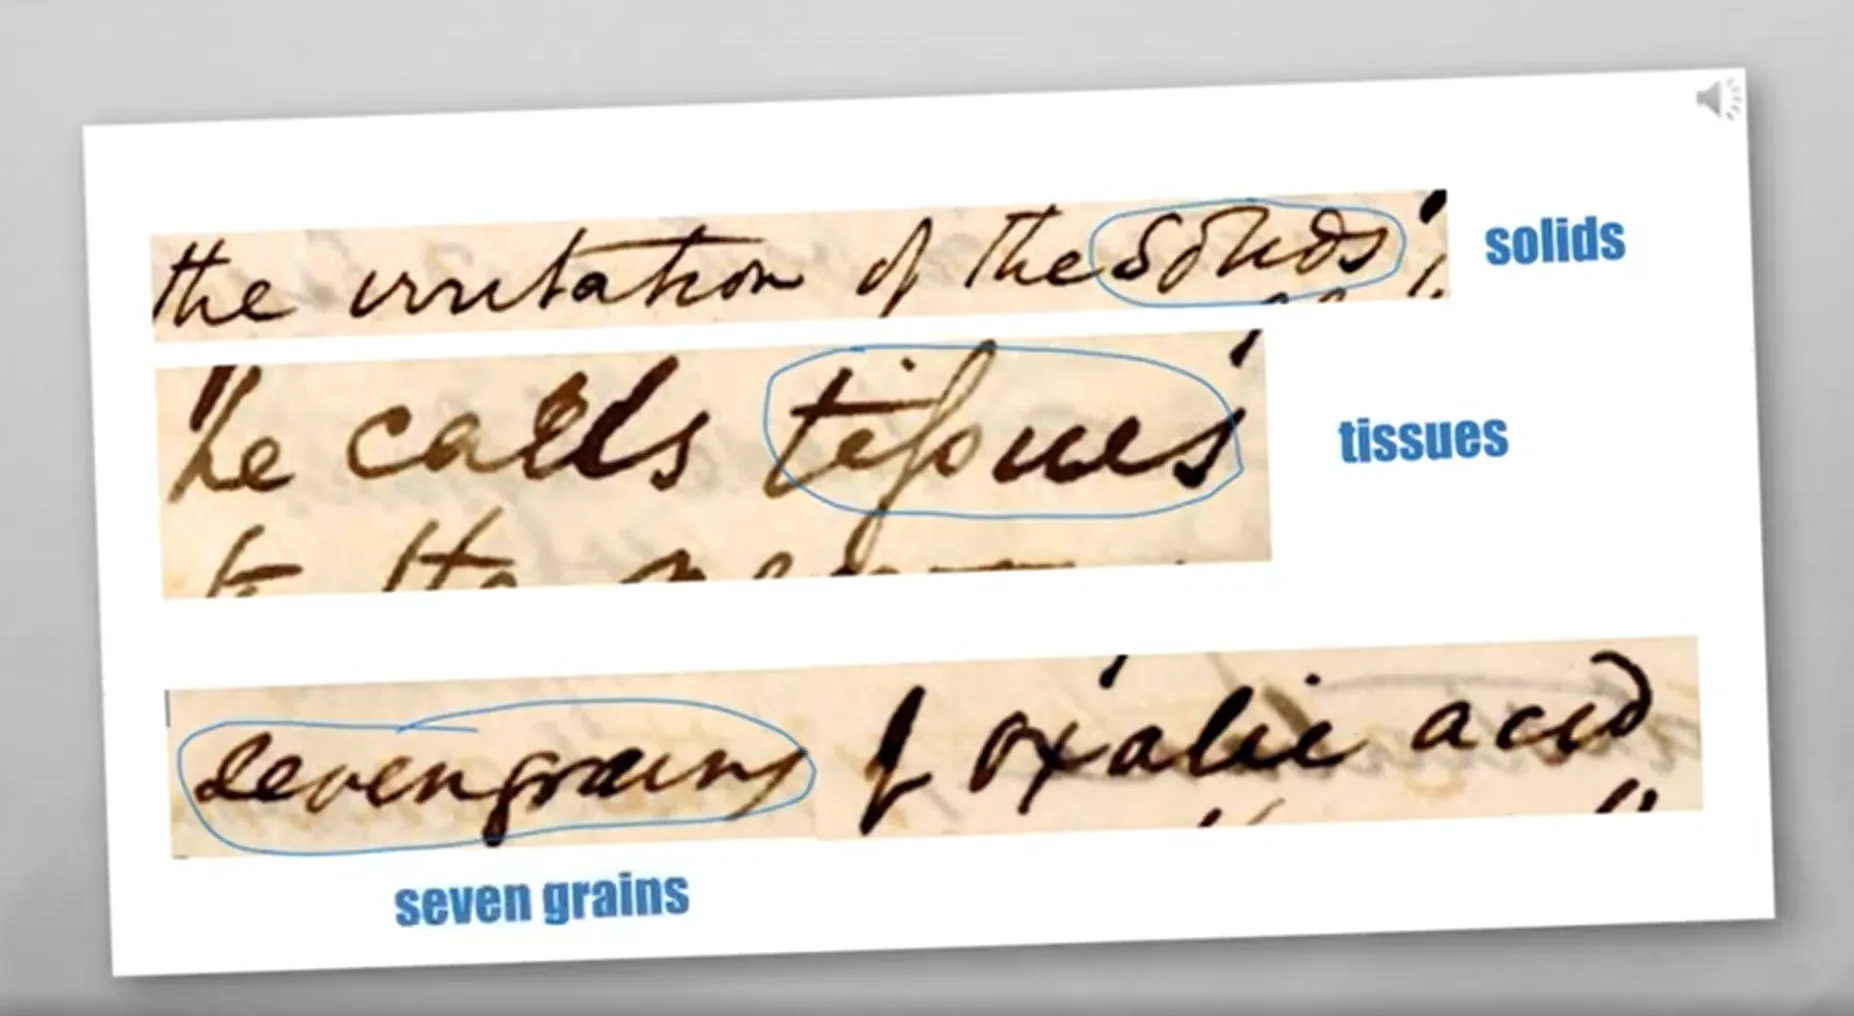 the irritation of the solids
solids
he calls tissues
tissues
to the
seven grains of oxalic acid
seven grains